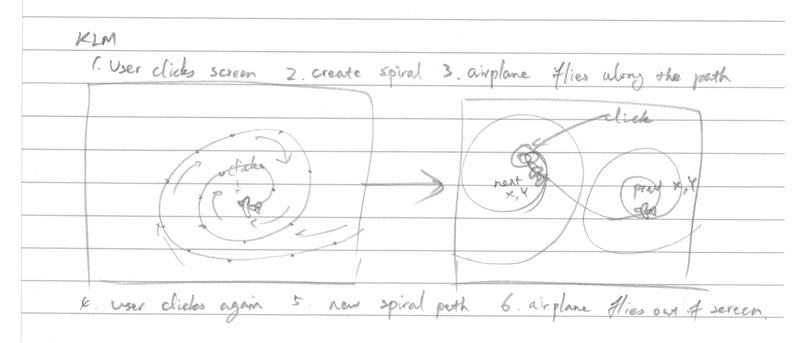 KLM
1. User clicks screen 2. create spiral 3. airplane flies along the path
click
click
next
x, Y
prev x, Y
4. user clicks again 5. new spiral path 6. airplane flies out of screen.